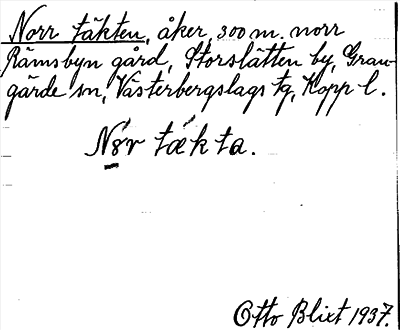 Norr täkten, åker, 300 m. norr
Rämsbyn gård, Storslätten by, Gran-
gärde sn, Västerbergslags tg, Kopp l.
Nór tǽkta.
Otto Blixt 1937.